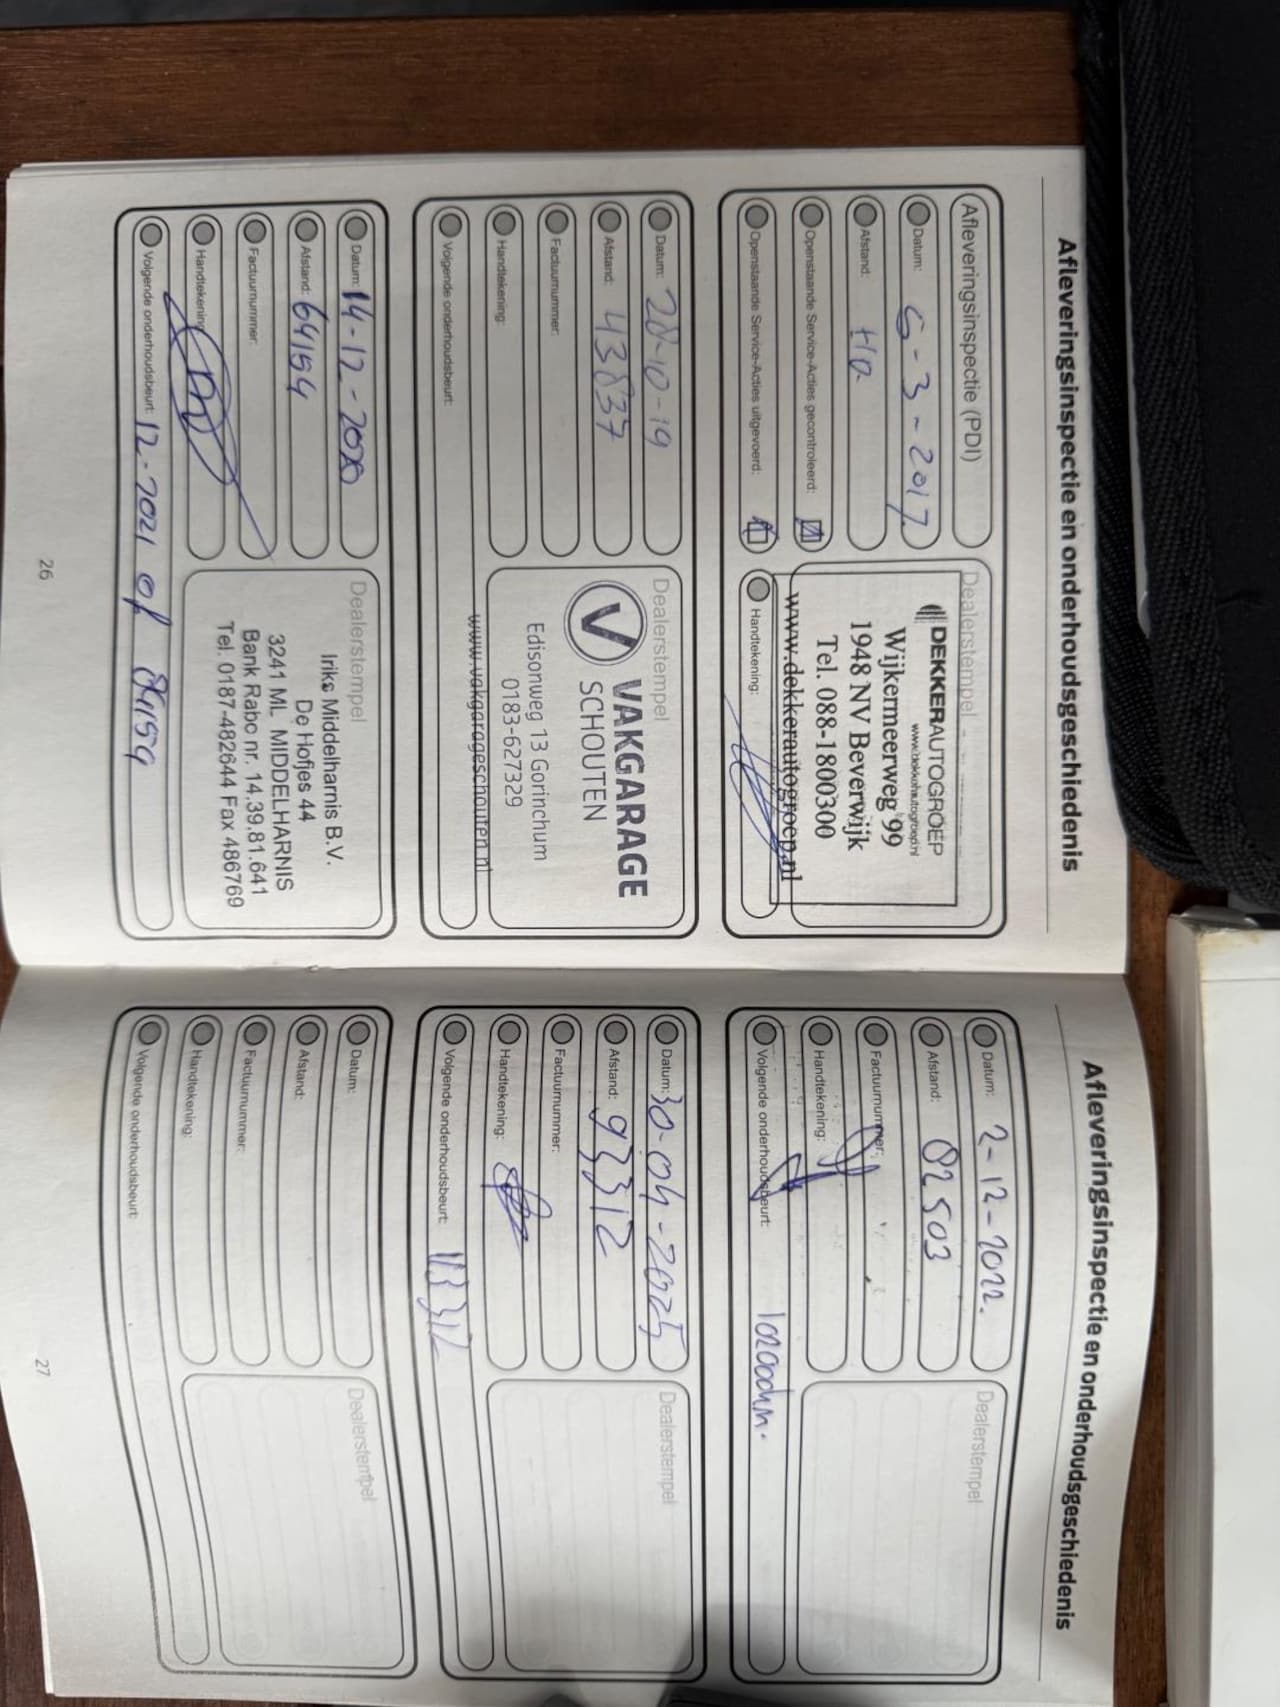 Afleveringsinspectie en onderhoudsgeschiedenis
Afleveringsinspectie (PDI)
Datum: 6-3-2017.
Afstand:
Openstaande Service-Acties gecontroleerd:
Openstaande Service-Acties uitgevoerd:
Dealerstempel
DEKKERAUTOGROEP
www.dekkerautogroep.nl
Wijkermeerweg 99
1948 NV Beverwijk
Tel. 088-1800300
www.dekkerautogroep.nl
Handtekening:
Datum: 28-10-19
Afstand: 43837
Factuurnummer:
Handtekening:
Volgende onderhoudsbeurt:
Dealerstempel
VAKGARAGE
SCHOUTEN
Edisonweg 13 Gorinchum
0183-627329
www.vakgarageschouten.nl
Datum: 14-12-2020
Afstand: 64159
Factuurnummer:
Handtekening:
Volgende onderhoudsbeurt: 12-2021 of 84159
Dealerstempel
Irikс Middelharnis B.V.
De Hofjes 44
3241 ML MIDDELHARNIS
Bank Rabo nr. 14.39.81.641
Tel. 0187-482644 Fax 486769
26
Afleveringsinspectie en onderhoudsgeschiedenis
Datum: 2-12-2022.
Afstand: 82503
Factuurnummer:
Handtekening:
Volgende onderhoudsbeurt: 102000km.
Dealerstempel
Datum: 30-04-2025
Afstand: 93312
Factuurnummer:
Handtekening:
Volgende onderhoudsbeurt: 113312
Dealerstempel
Datum:
Afstand:
Factuurnummer:
Handtekening:
Volgende onderhoudsbeurt:
Dealerstempel
27